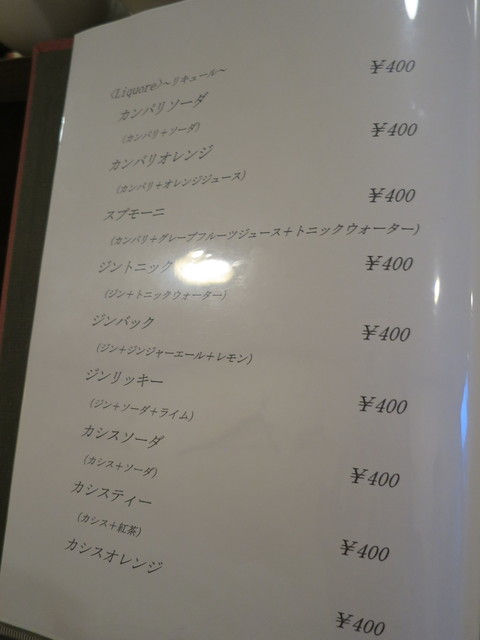 <Liquore>~リキュール~
カンパリソーダ ¥400
(カンパリ+ソーダ)
カンパリオレンジ ¥400
(カンパリ+オレンジジュース)
スプモーニ ¥400
(カンパリ+グレープフルーツジュース+トニックウォーター)
ジントニック ¥400
(ジン+トニックウォーター)
ジンバック ¥400
(ジン+ジンジャーエール+レモン)
ジンリッキー ¥400
(ジン+ソーダ+ライム)
カシスソーダ ¥400
(カシス+ソーダ)
カシスティー ¥400
(カシス+紅茶)
カシスオレンジ ¥400